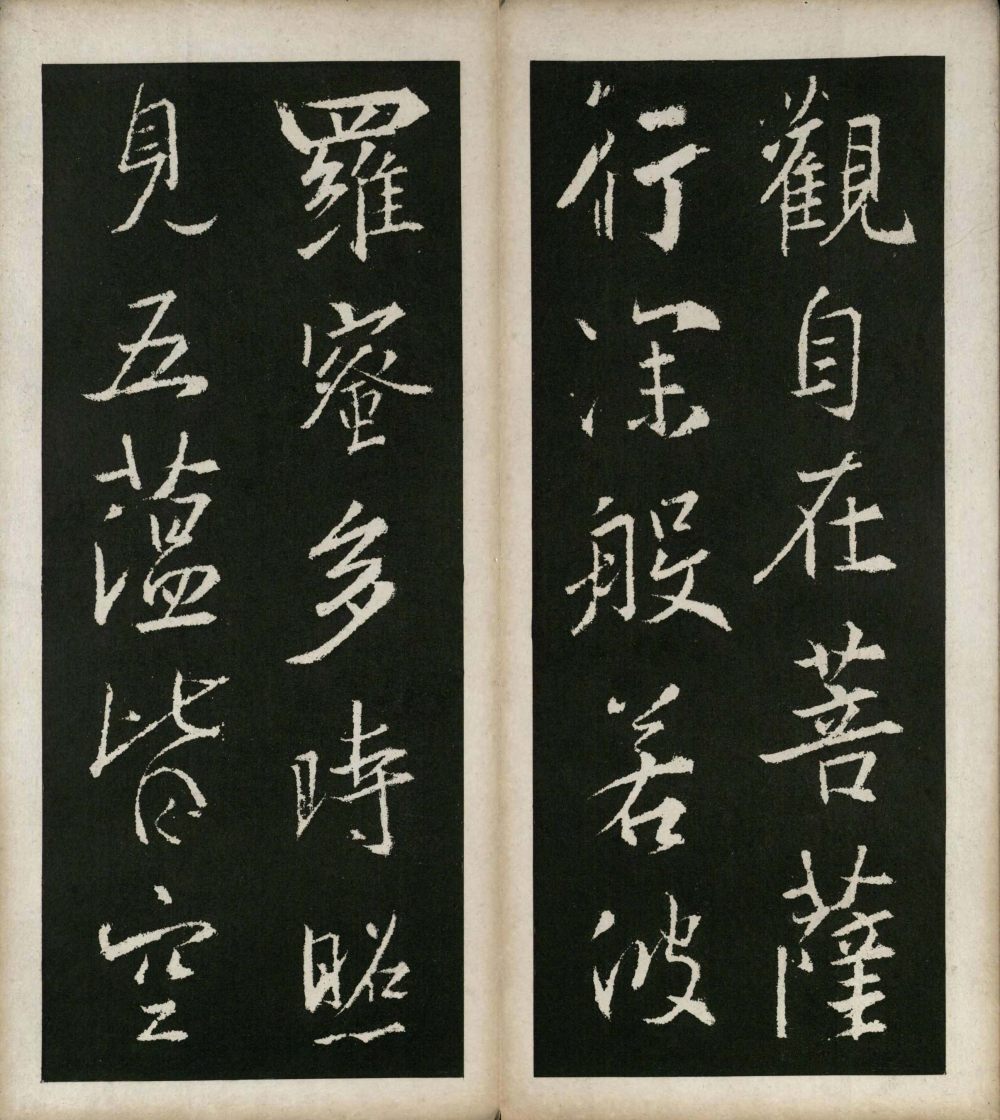 觀自在菩薩
行深般若波
羅蜜多時照
見五蕴皆空